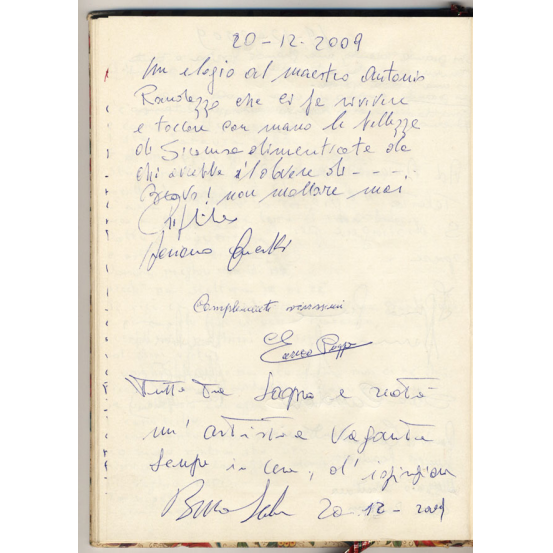 20-12-2009
Un elogio al maestro Antonio
Randazzo che ci fa rivivere
e toccare con mano le bellezze
di Siracusa dimenticate da
chi avrebbe il dovere di - - - .
Bravo! non mollare mai
Complimenti vivissimi
Tutto tra sogno e realtà
un' artista vagante
sempre in cerca, d' ispirazion
20-12-2009